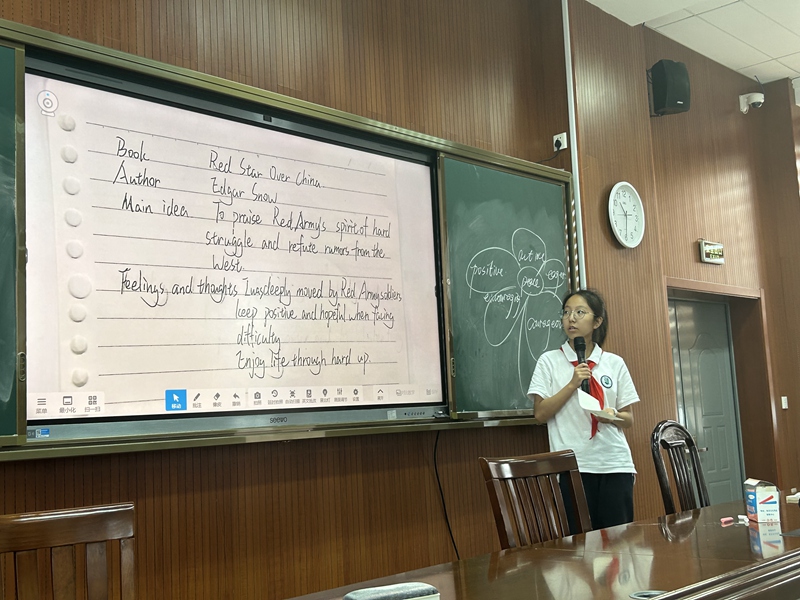 Book Red Star Over China.
Author Edgar Snow
Main idea To praise Red Army's spirit of hard
struggle and refute rumors from the
West.
Feelings and thoughts I was deeply moved by Red Army soldiers
keep positive and hopeful when facing
difficulty
Enjoy life through hard up.
菜单 最小化 扫一扫
移动
seewo
positive
active
courageous